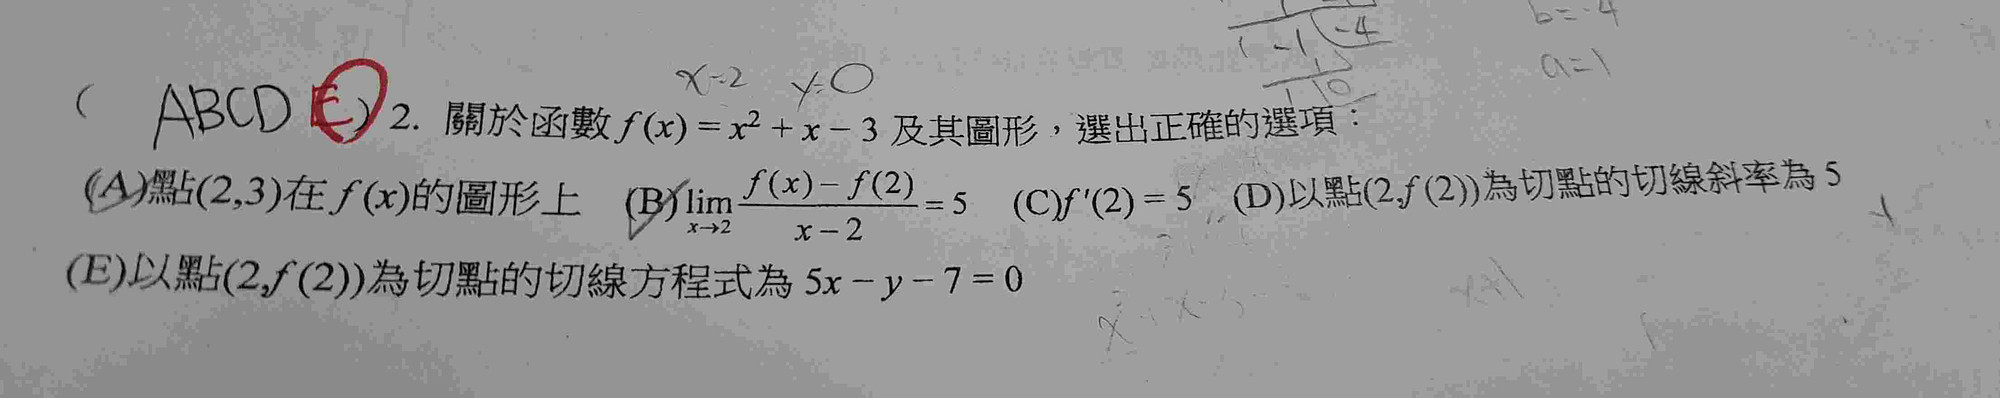 1 -1 -4
b=-4
a=1
1 0
x=2 y=0
( ABCD E ) 2. 關於函數 f(x) = x² + x − 3 及其圖形，選出正確的選項：
(A)點(2,3)在 f(x)的圖形上 (B) lim x→2 f(x) − f(2) / x − 2 = 5 (C)f'(2) = 5 (D)以點(2,f(2))為切點的切線斜率為 5
(E)以點(2,f(2))為切點的切線方程式為 5x − y − 7 = 0